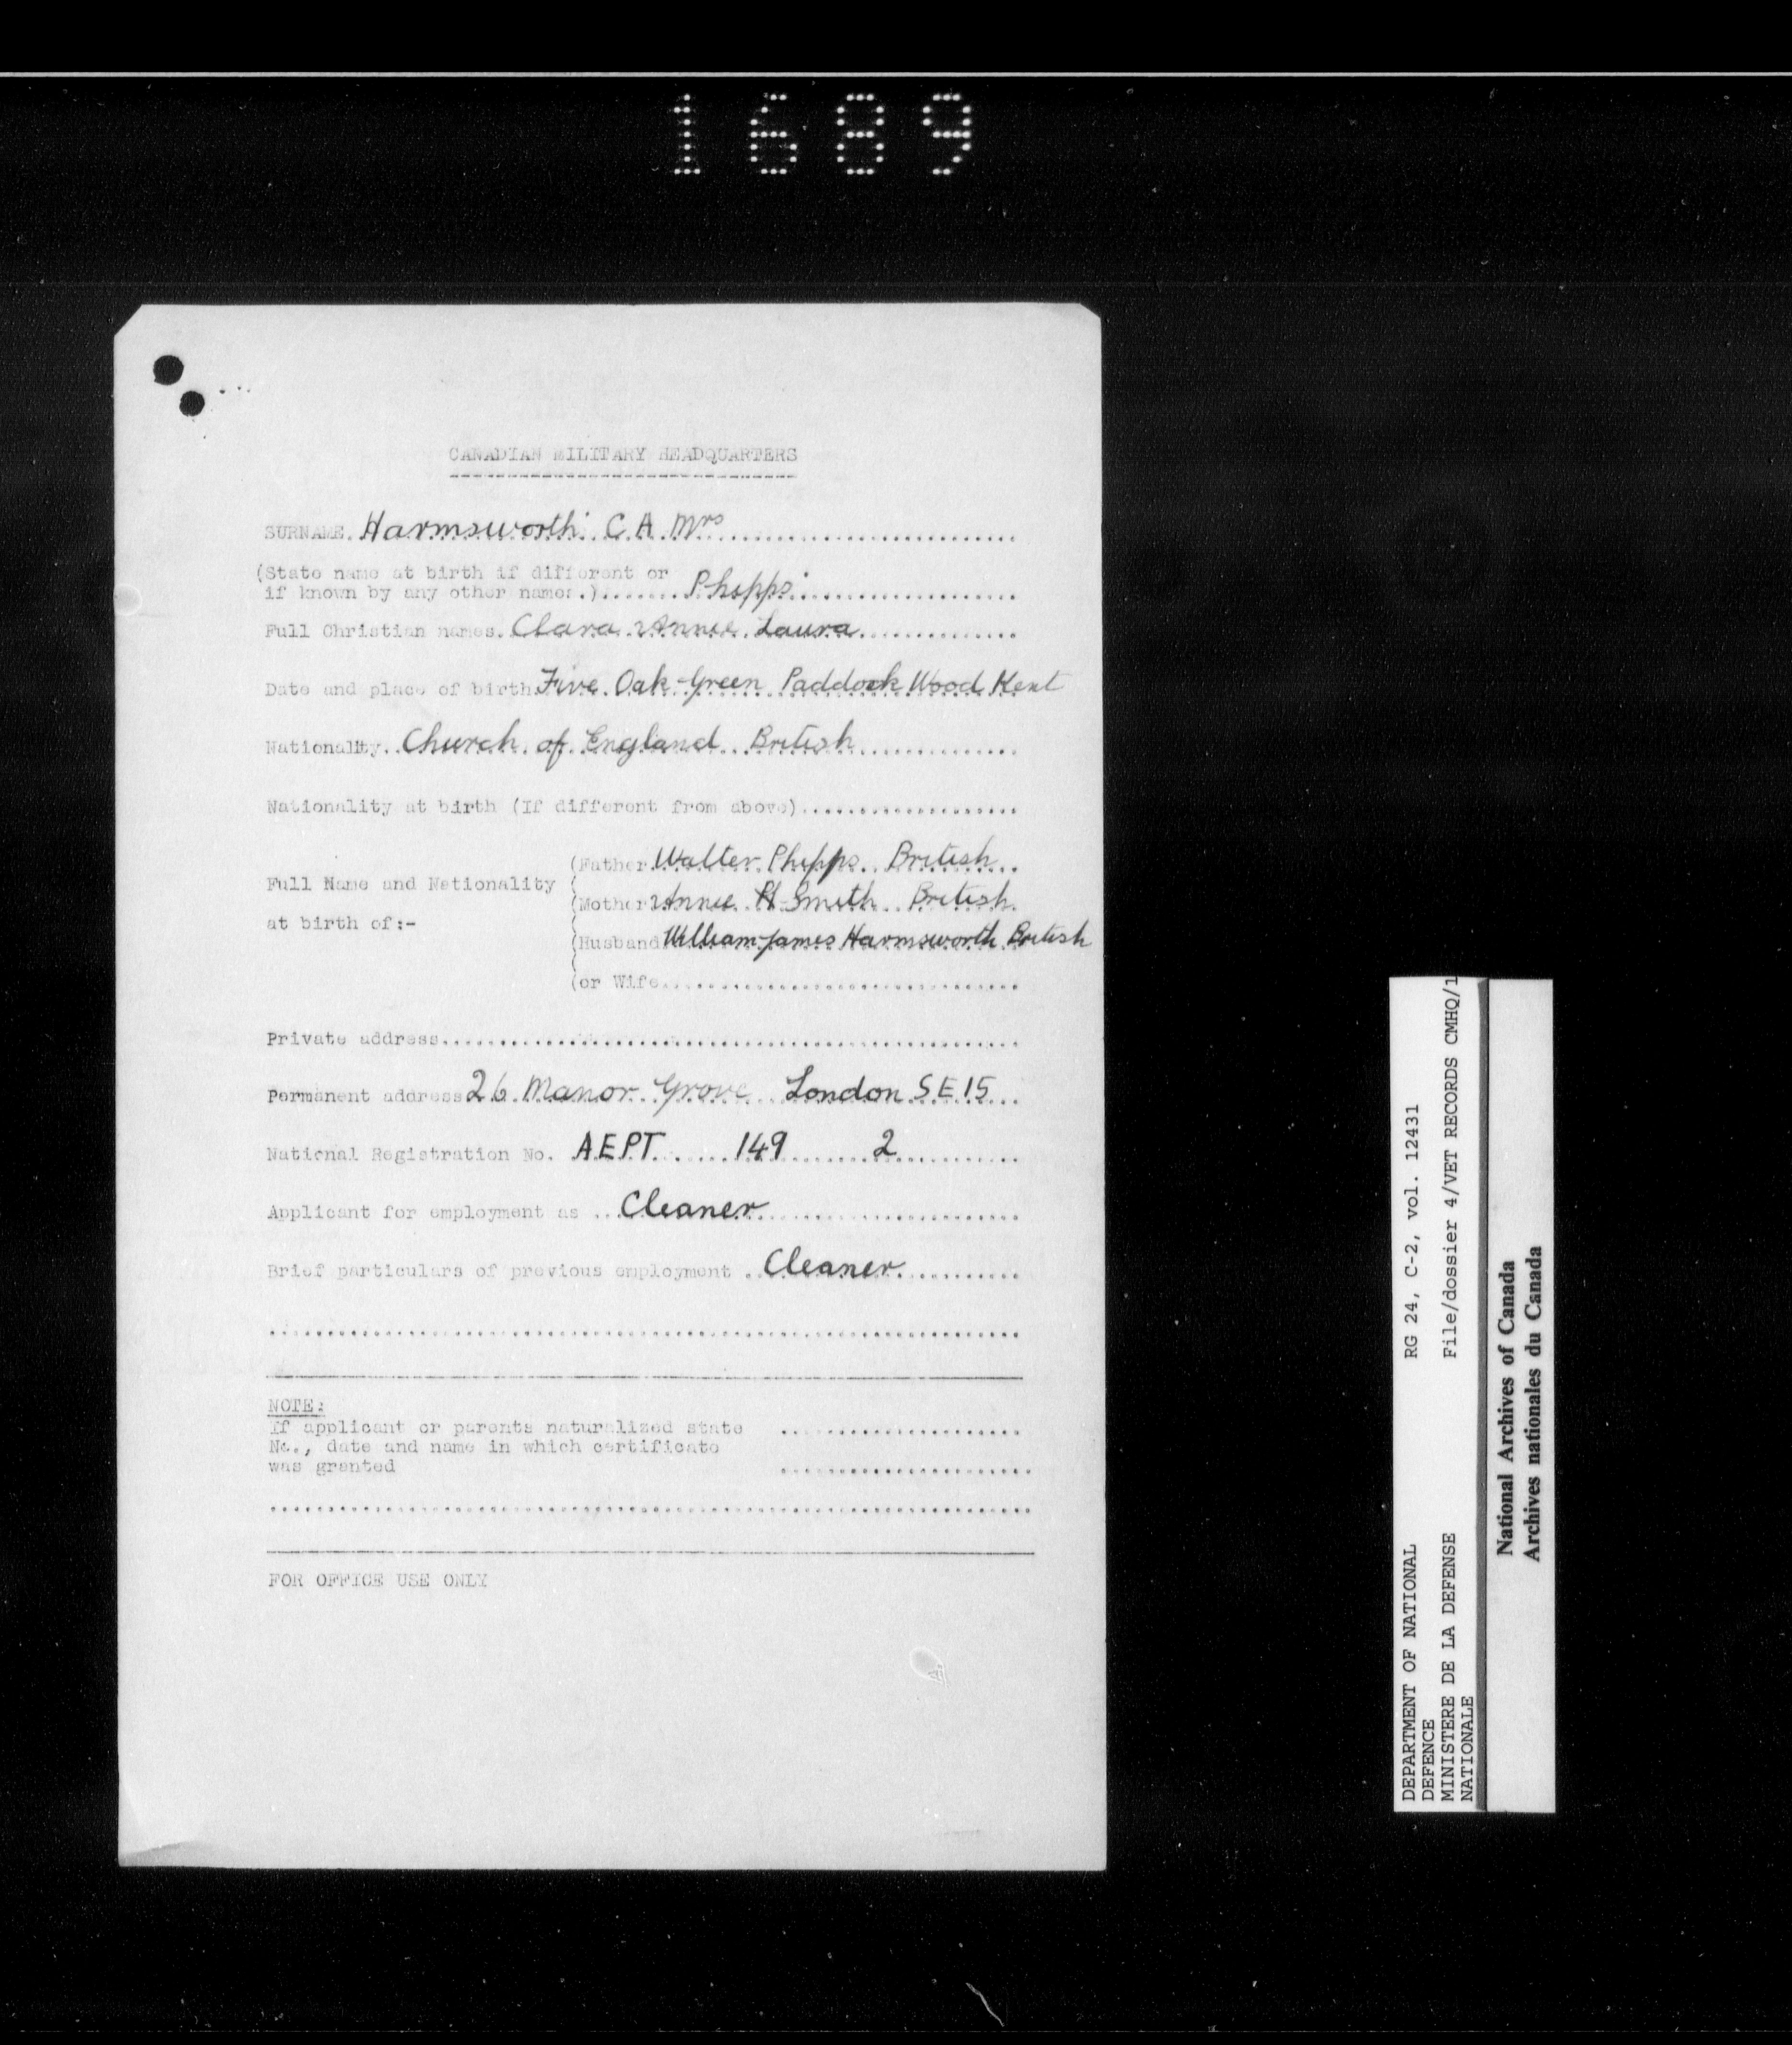 1689
CANADIAN MILITARY HEADQUARTERS
SURNAME. Harmsworth C A Mrs
(State name at birth if different or
if known by any other names.)........ Phipps
Full Christian names. Clara Annie Laura
Date and place of birth. Five Oak Green Paddock Wood Kent
Nationality.. Church of England British
Nationality at birth (If different from above)...................
Full Name and Nationality
at birth of:-
(Father Walter Phipps British
(Mother Annie H Smith British
(Husband William James Harmsworth British
(or Wife...............................
Private address..................................................
Permanent address 26 Manor Grove London S E 15
National Registration No. AEPT 149 2
Applicant for employment as ... Cleaner
Brief particulars of previous employment .. Cleaner
NOTE:
If applicant or parents naturalized state
No., date and name in which certificate
was granted
FOR OFFICE USE ONLY
DEPARTMENT OF NATIONAL
DEFENCE
MINISTERE DE LA DEFENSE
NATIONALE
RG 24, C-2, vol. 12431
File/dossier 4/VET RECORDS CMHQ/1
National Archives of Canada
Archives nationales du Canada